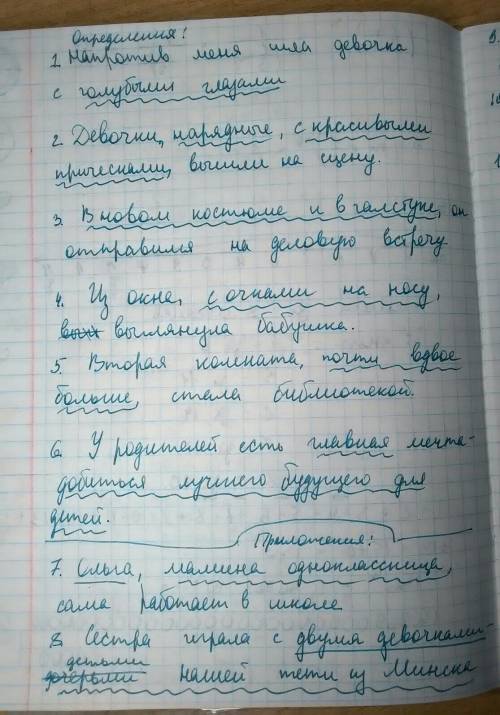 Определения!
1. Напротив меня шла девочка
с голубыми глазами
2. Девочки, нарядные, с красивыми
прическами, вышли на сцену.
3. В новом костюме и в галстуке, он
отправился на деловую встречу
4. Из окна, с очками на носу,
выглянула бабушка.
5. Вторая комната, почти вдвое
больше, стала библиотекой.
6. У родителей есть главная мечта-
добиться лучшего будущего для
детей.
Приложения!
7. Ольга, мамина одноклассница,
сама работает в школе
8. Сестра играла с двумя девочками-
детьми нашей тети из Минска